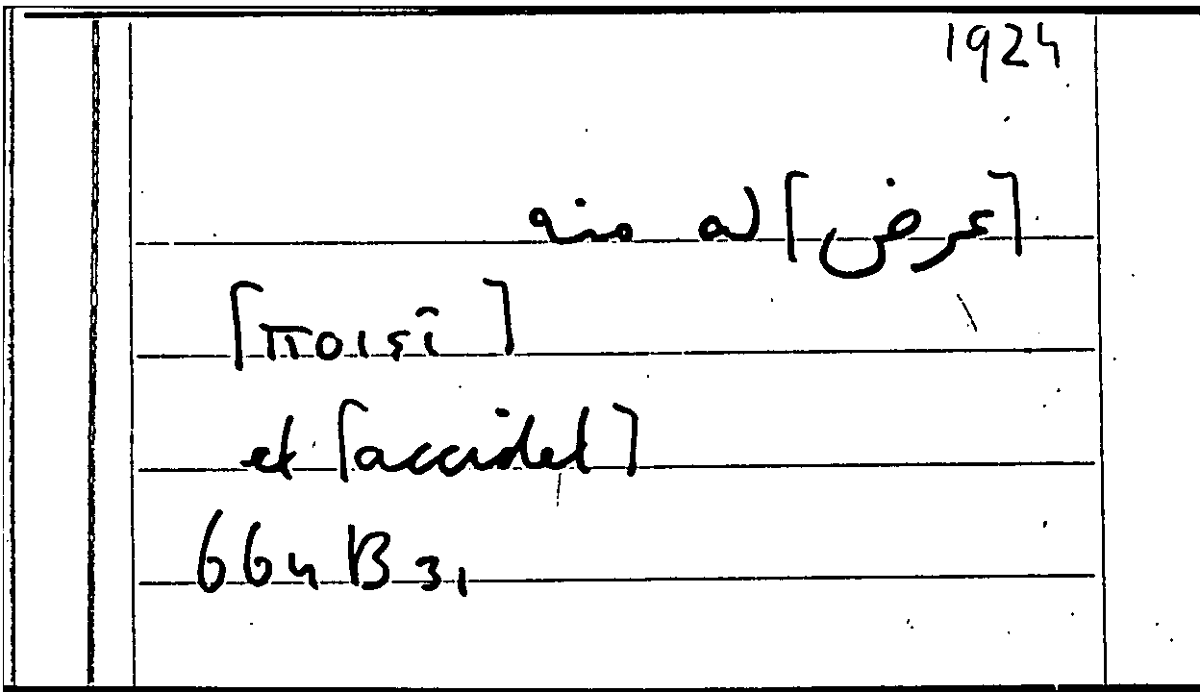 1924
[عرض] له منه
[ποιεῖ]
et [accidet]
664 B 31